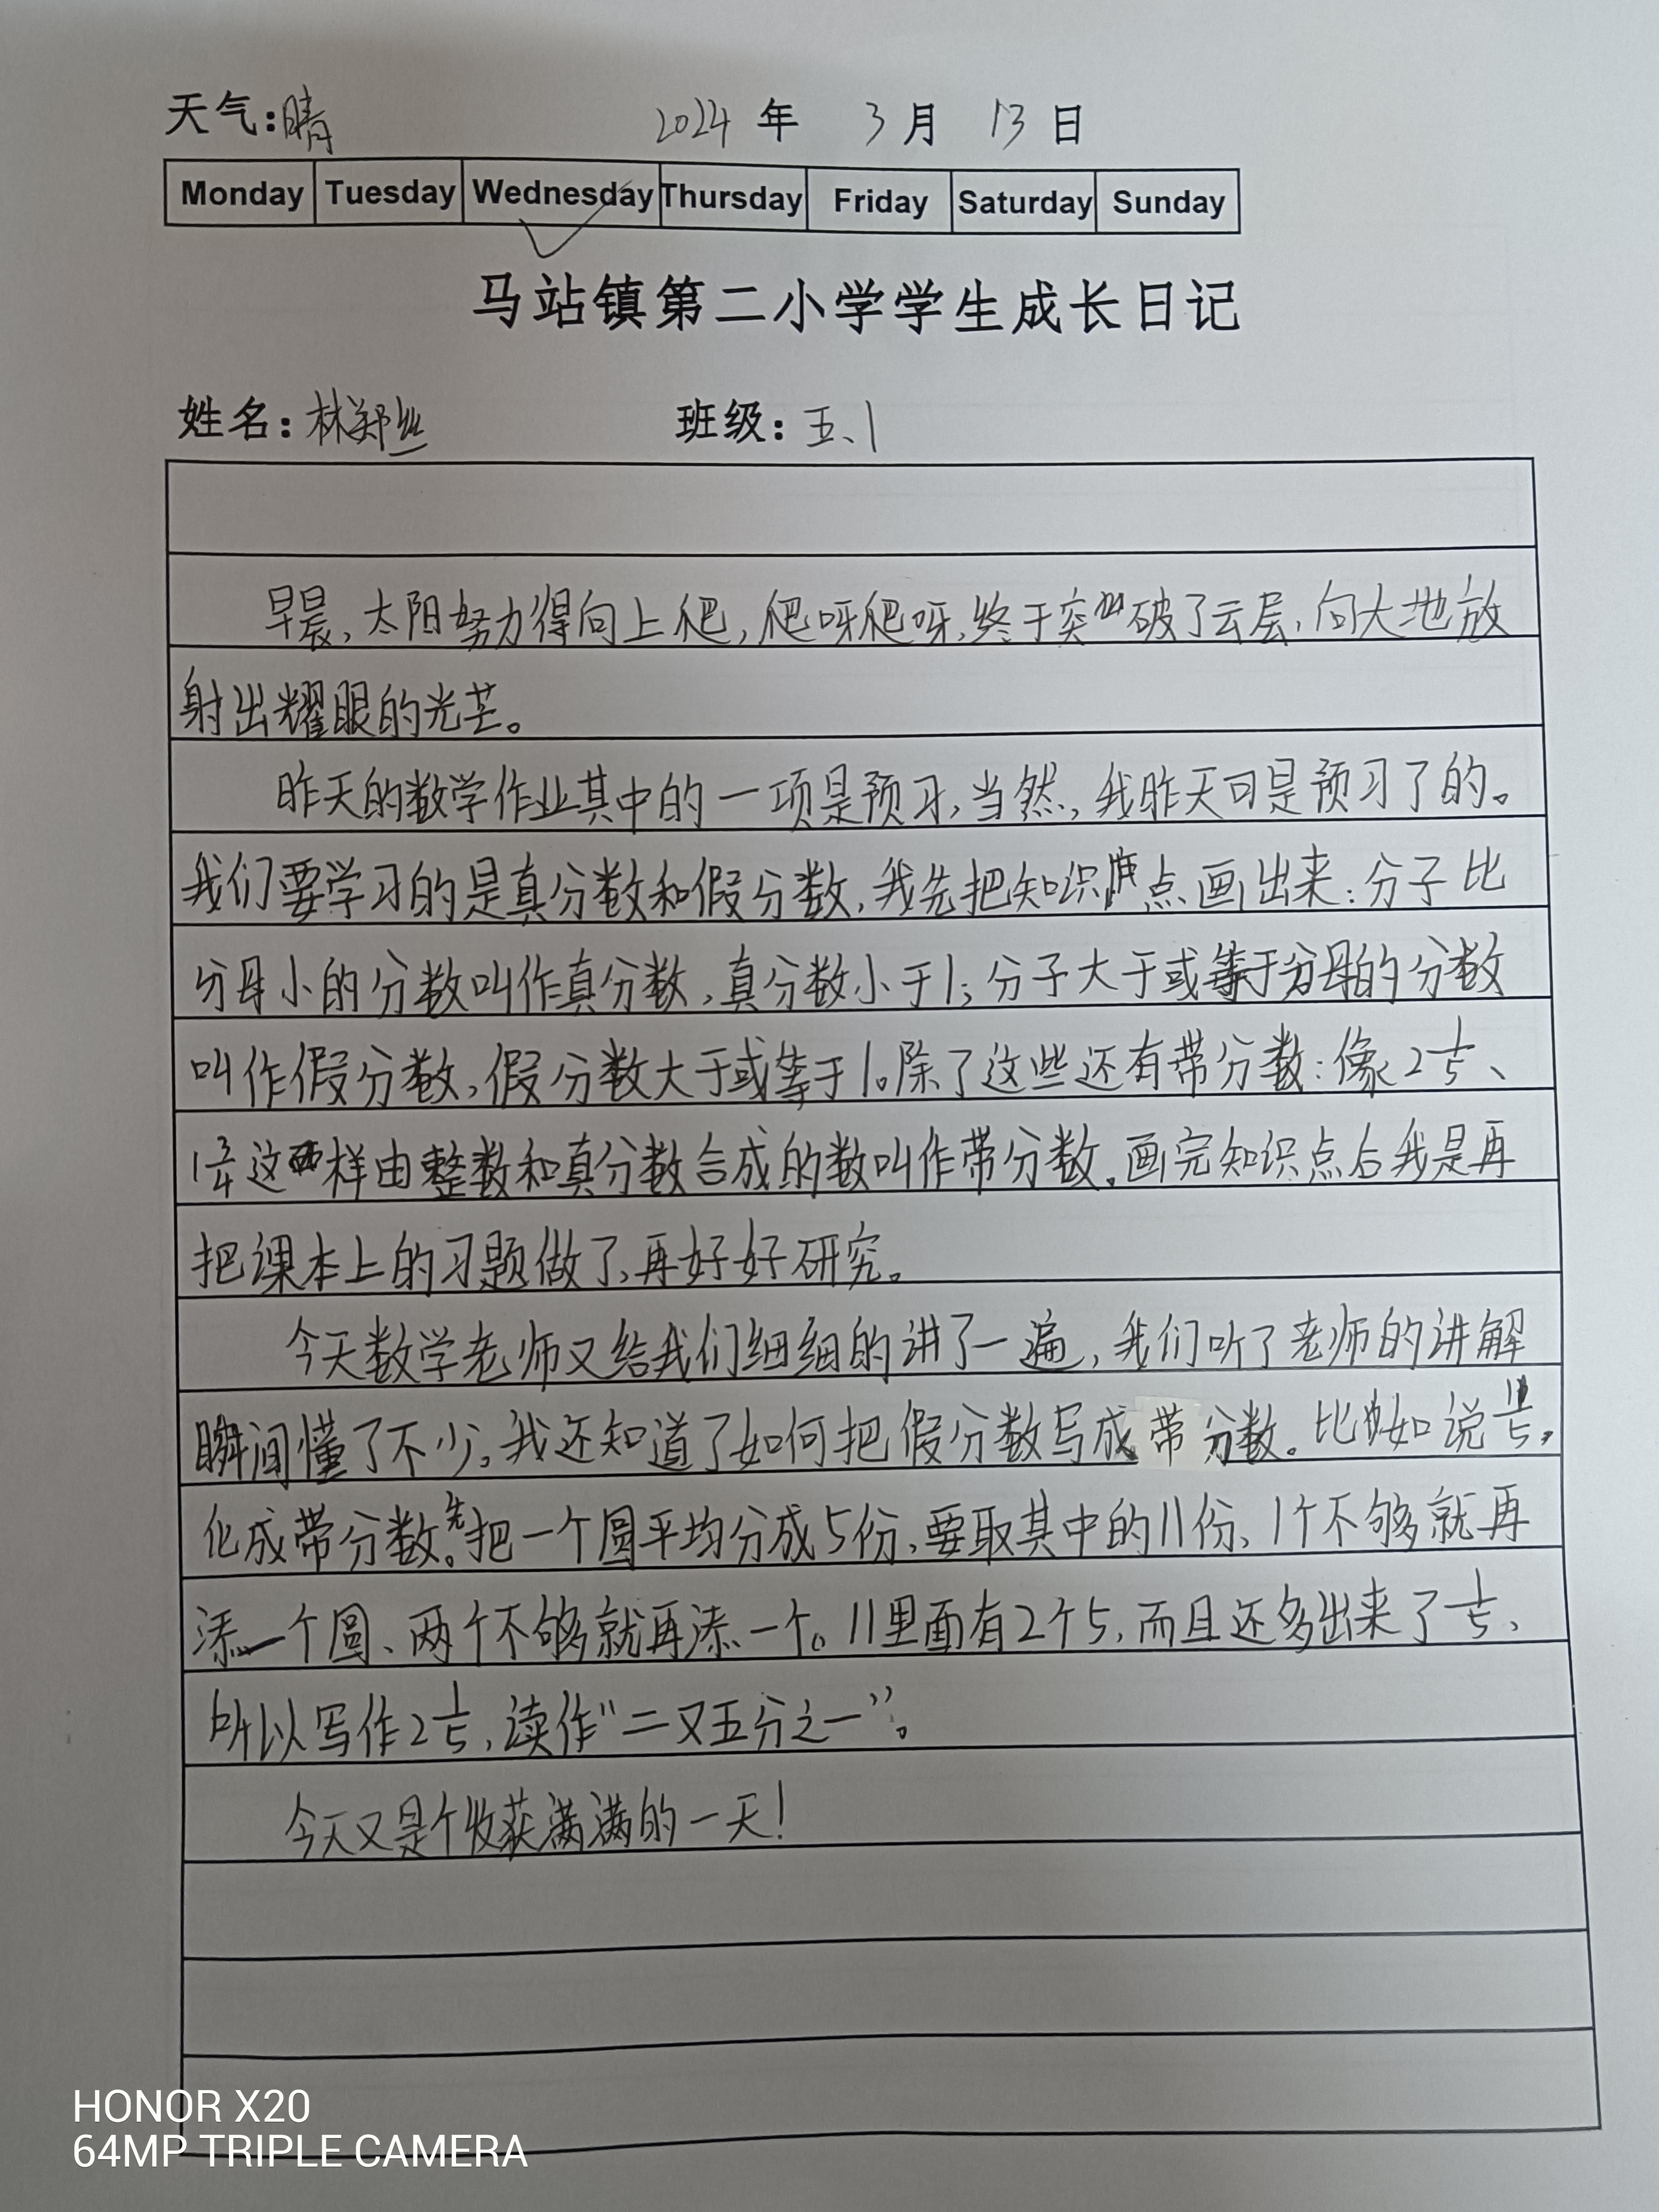 天气:晴 2024 年 3 月 13 日
Monday Tuesday Wednesday Thursday Friday Saturday Sunday
马站镇第二小学学生成长日记
姓名:林郑丝 班级:五、1
早晨,太阳努力得向上爬,爬呀爬呀,终于突破了云层,向大地放
射出耀眼的光芒。
昨天的数学作业其中的一项是预习,当然,我昨天可是预习了的。
我们要学习的是真分数和假分数,我先把知识点画出来:分子比
分母小的分数叫作真分数,真分数小于1;分子大于或等于分母的分数
叫作假分数,假分数大于或等于1。除了这些还有带分数:像2 1/5、
1 3/4这样由整数和真分数合成的数叫作带分数。画完知识点后我是再
把课本上的习题做了,再好好研究。
今天数学老师又给我们细细的讲了一遍,我们听了老师的讲解
瞬间懂了不少。我还知道了如何把假分数写成带分数。比如说11/5,
化成带分数。先把一个圆平均分成5份,要取其中的11份、1个不够就再
添一个圆、两个不够就再添一个。11里面有2个5,而且还多出来了1/5、
所以写作2 1/5,读作“二又五分之一”。
今天又是个收获满满的一天!
HONOR X20
64MP TRIPLE CAMERA